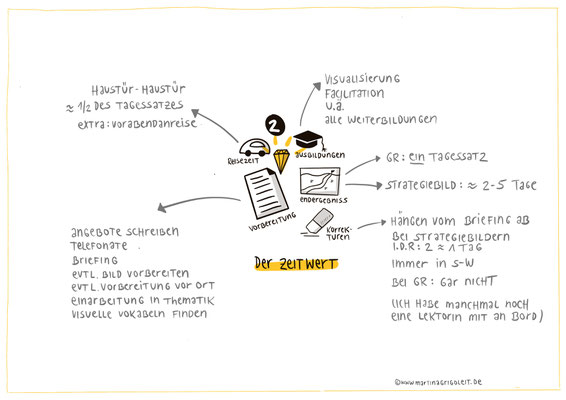 Haustür-Haustür
≈ 1/2 des Tagessatzes
extra: Vorabendanreise
Visualisierung
Facilitation
u.a.
alle Weiterbildungen
2
Reisezeit
Ausbildungen
GR: ein Tagessatz
Strategiebild: ≈ 2-5 Tage
Endergebniss
Vorbereitung
Korrek-
turen
Der Zeitwert
Angebote schreiben
Telefonate
Briefing
evtl. Bild vorbereiten
evtl. Vorbereitung vor Ort
Einarbeitung in Thematik
visuelle Vokabeln finden
Hängen vom Briefing ab
Bei Strategiebildern
i.d.R: 2 ≈ 1 Tag
Immer in S-W
Bei GR: gar nicht
(Ich habe manchmal noch
eine Lektorin mit an Bord)
©www.martinagrigoleit.de